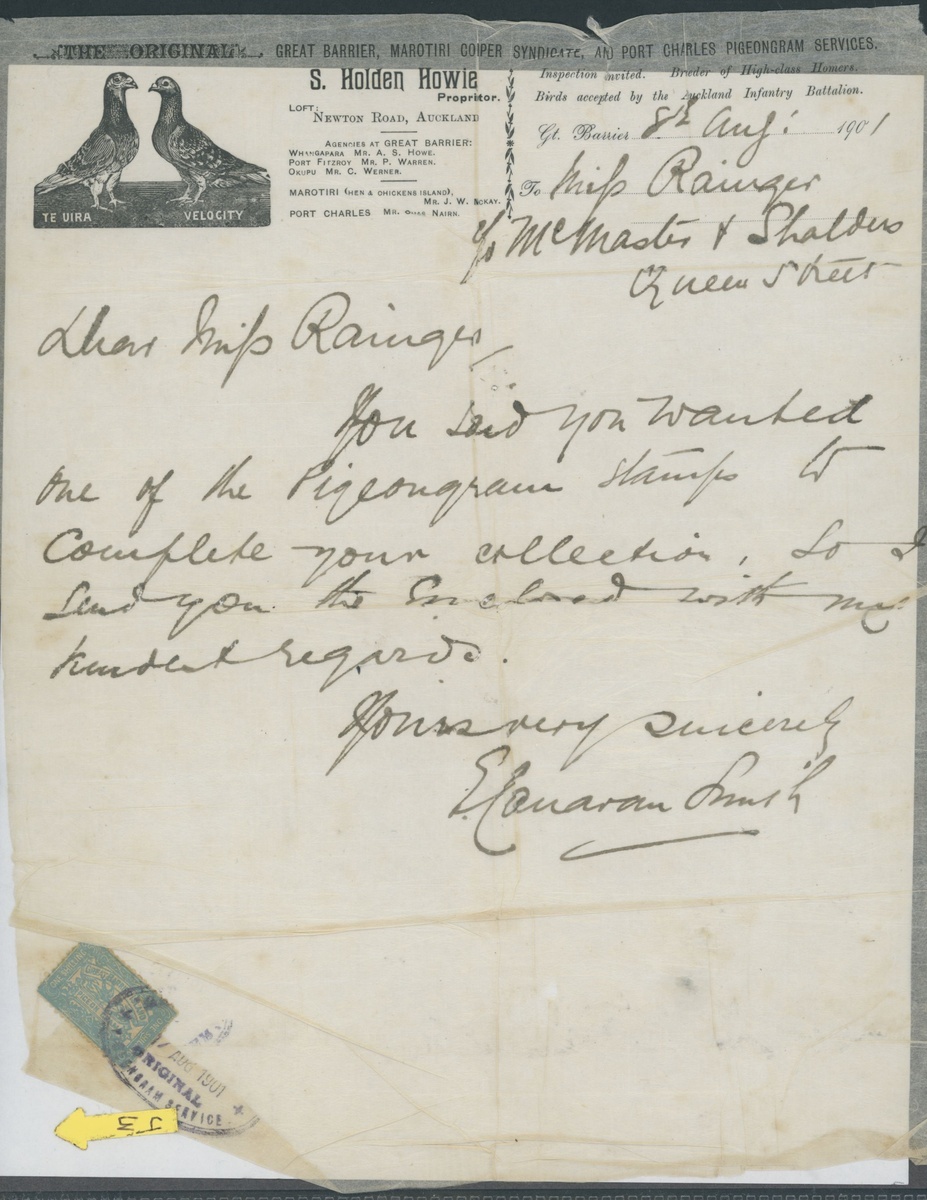 THE ORIGINAL GREAT BARRIER, MAROTIRI COPPER SYNDICATE, AND PORT CHARLES PIGEONGRAM SERVICES.
S. Holden Howie
Propritor.
LOFT:
NEWTON ROAD, AUCKLAND
AGENCIES AT GREAT BARRIER:
WHANGAPARA MR. A. S. HOWE.
PORT FITZROY MR. P. WARREN.
OKUPU MR. C. WERNER.
MAROTIRI (HEN & CHICKENS ISLAND),
MR. J. W. MCKAY.
PORT CHARLES MR. CHAS NAIRN.
TE UIRA VELOCITY
Inspection invited. Breeder of High-class Homers.
Birds accepted by the Auckland Infantry Battalion.
Gt. Barrier 8th Aug: 1901
To Miss Rainger
c/o McMaster & Shalders
Queen Street
Dear Miss Rainger
You said you wanted
one of the Pigeongram stamps to
Complete your collection, so I
send you the Enclosed with my
kindest regards.
Yours very sincerely
Smith
AUG 1901
ORIGINAL
SERVICE